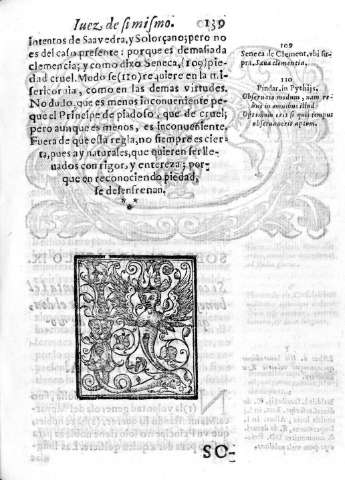 Iuez de si mismo. 139
intentos de Saavedra, y Solorçano; pero no
es del caso presente: porque es demasiada
clemencia; y como dixo Seneca, (109) pie-
dad cruel. Modo se (110) requiere en la mi-
sericordia, como en las demas virtudes.
No dudo, que es menos inconueniente pe-
que el Principe de piadoso, que de cruel;
pero aunque es menos, es inconueniente.
Fuera de que esta regla, no siempre es cier-
ta, pues ay naturales, que quieren ser lle-
uados con rigor, y entereza; por-
que en reconociendo piedad,
se desenfrenan.
109
Seneca de Clement, vbi su-
pra. Saeua clementia.
110
Pindar. in Pythijs.
Obseruato modum, nam re-
bus in omnibus illud
Optimum erit si quis tempus
obseruauerit aptum.
SO-